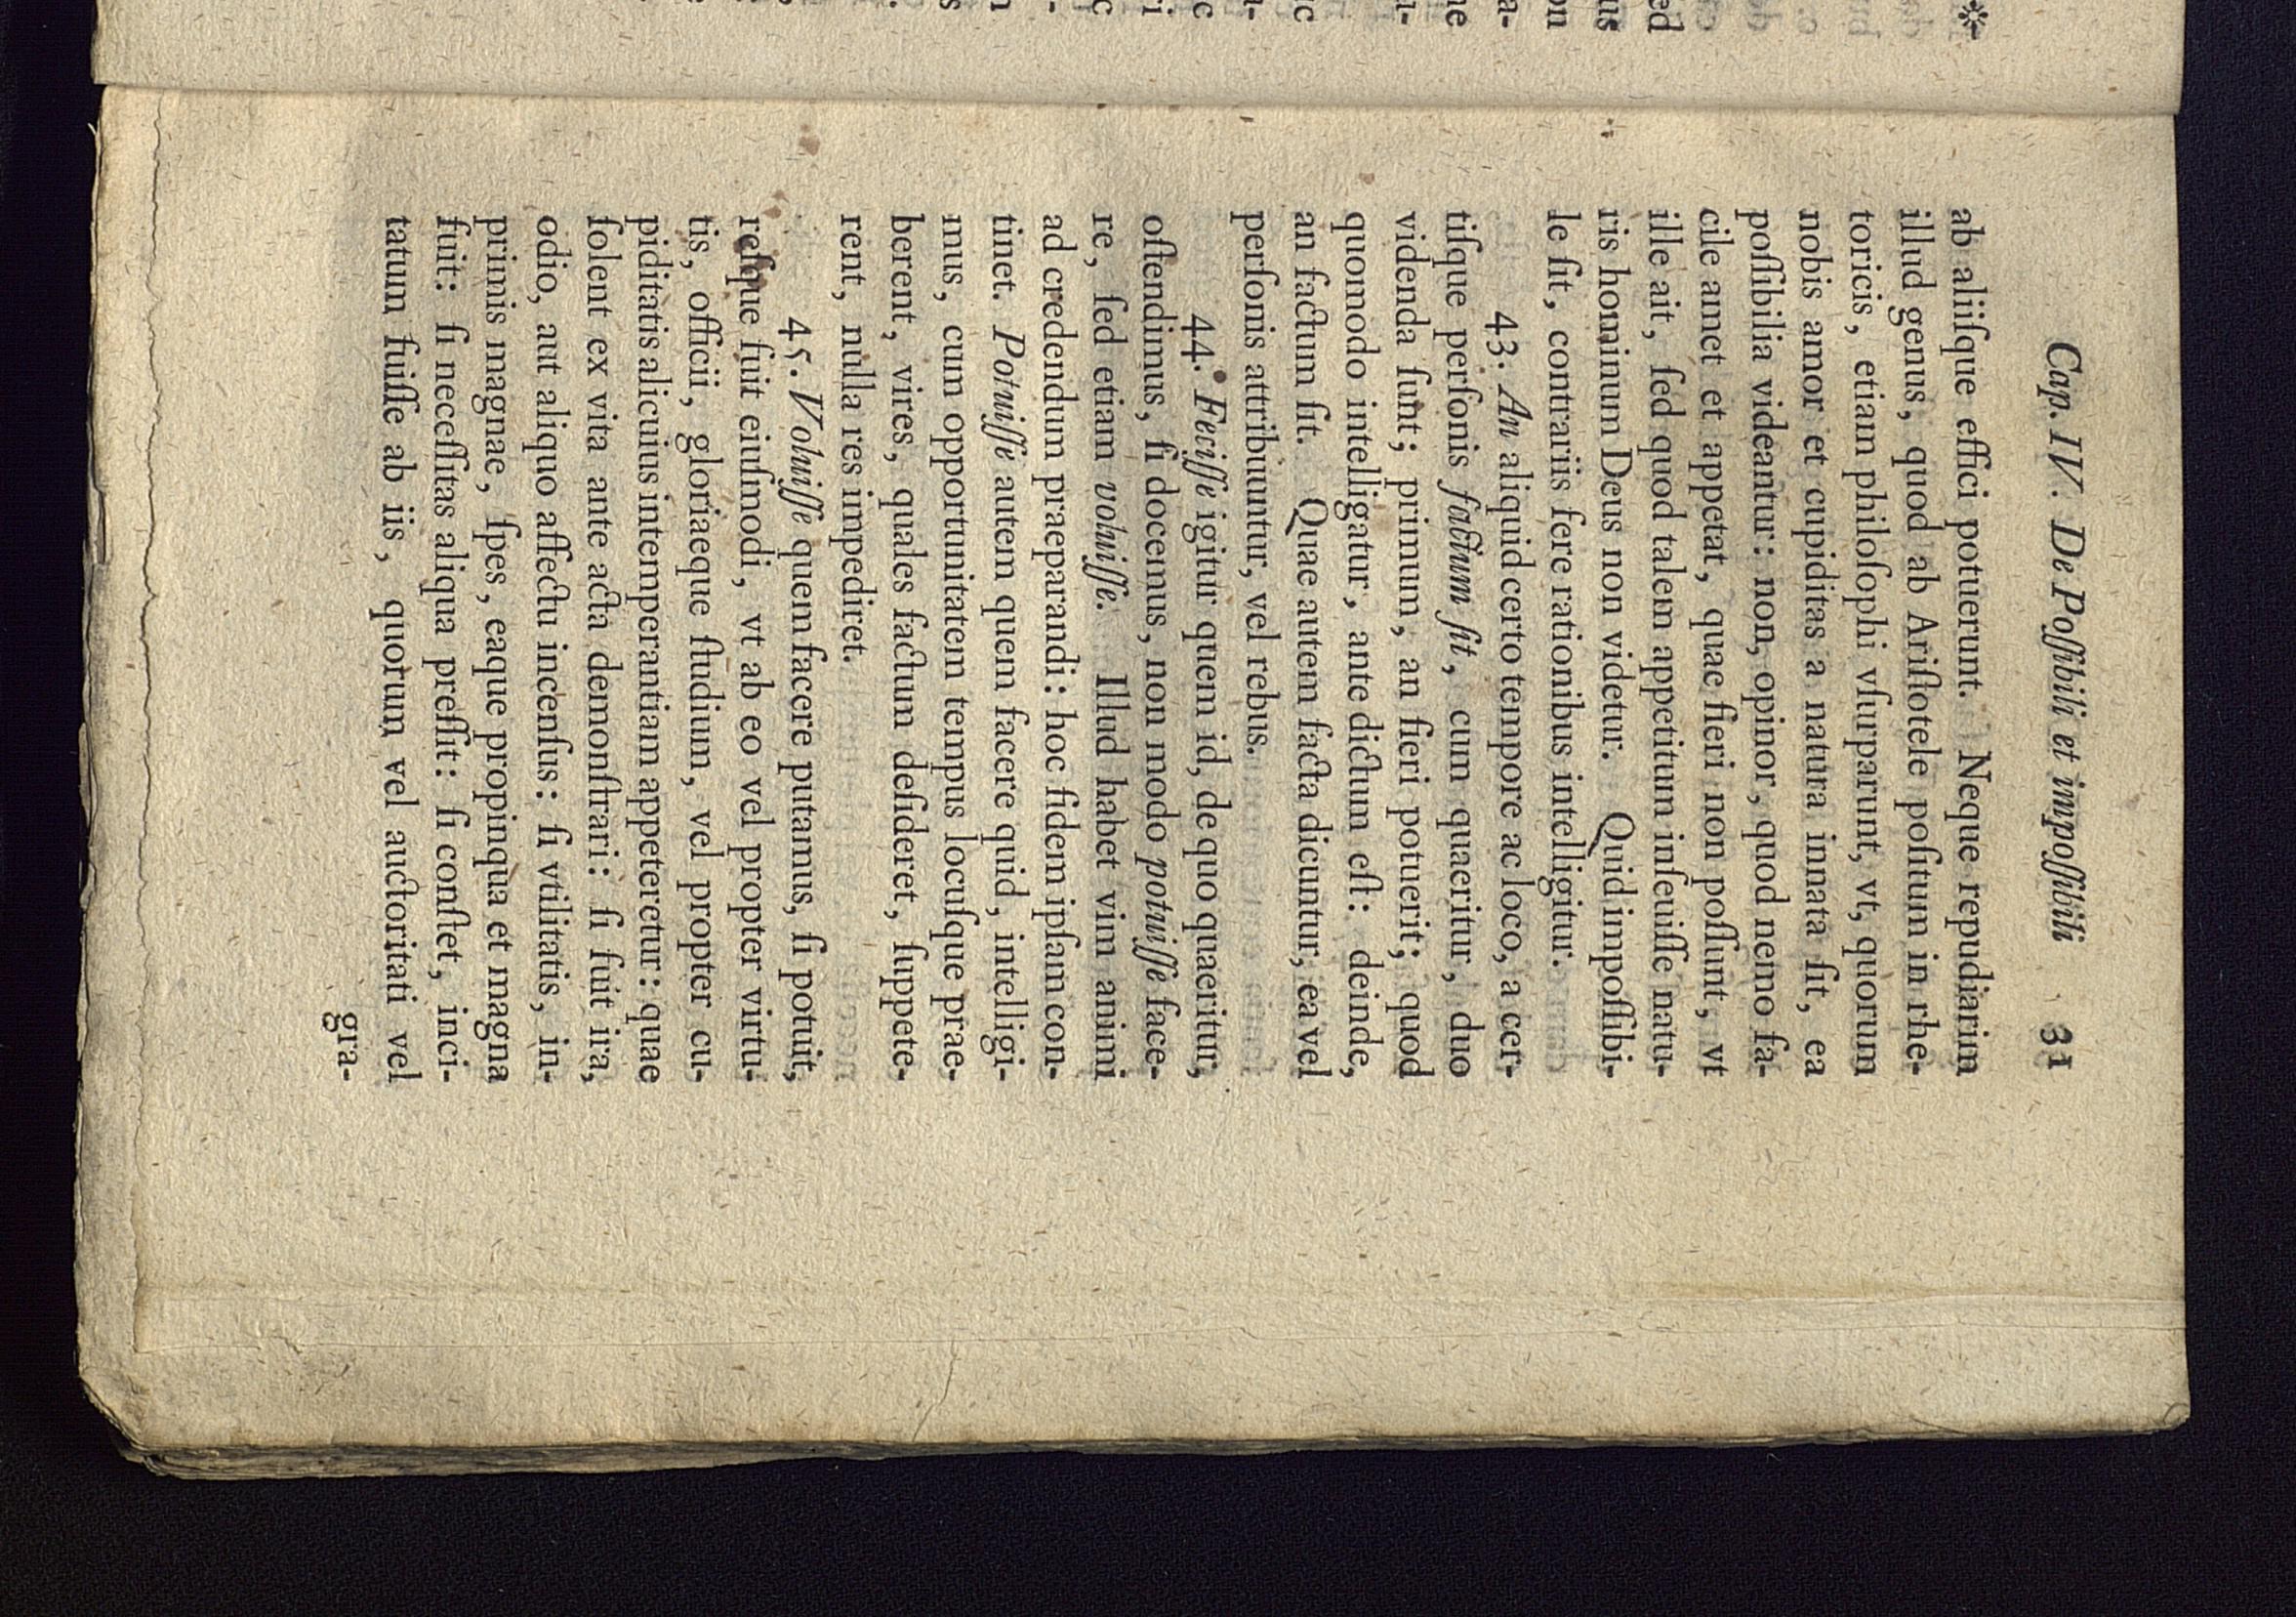 Cap. IV. De Poſſibili et impoſſibili 31
ab aliiſque effici potuerunt. Neque repudiarim
illud genus, quod ab Ariſtotele poſitum in rhe-
toricis, etiam philoſophi vſurparunt, vt, quorum
nobis amor et cupiditas a natura innata ſit, ea
poſſibilia videantur: non, opinor, quod nemo fa-
cile amet et appetat, quae fieri non poſſunt, vt
ille ait, ſed quod talem appetitum inſeuiſſe natu-
ris hominum Deus non videtur. Quid impoſſibi-
le ſit, contrariis fere rationibus intelligitur.
43. An aliquid certo tempore ac loco, a cer-
tiſque perſonis factum ſit, cum quaeritur, duo
videnda ſunt; primum, an fieri potuerit; quod
quomodo intelligatur, ante dictum eſt: deinde,
an factum ſit. Quae autem facta dicuntur, ea vel
perſonis attribuuntur, vel rebus.
44. Feciſſe igitur quem id, de quo quaeritur,
oſtendimus, ſi docemus, non modo potuiſſe face-
re, ſed etiam voluiſſe. Illud habet vim animi
ad credendum praeparandi: hoc fidem ipſam con-
tinet. Potuiſſe autem quem facere quid, intelligi-
mus, cum opportunitatem tempus locuſque prae-
berent, vires, quales factum deſideret, ſuppete-
rent, nulla res impediret.
45. Voluiſſe quem facere putamus, ſi potuit,
reſque fuit eiuſmodi, vt ab eo vel propter virtu-
tis, officii, gloriaeque ſtudium, vel propter cu-
piditatis alicuius intemperantiam appeteretur: quae
ſolent ex vita ante acta demonſtrari: ſi fuit ira,
odio, aut aliquo affectu incenſus: ſi vtilitatis, in-
primis magnae, ſpes, eaque propinqua et magna
fuit: ſi neceſſitas aliqua preſſit: ſi conſtet, inci-
tatum fuiſſe ab iis, quorum vel auctoritati vel
gra-